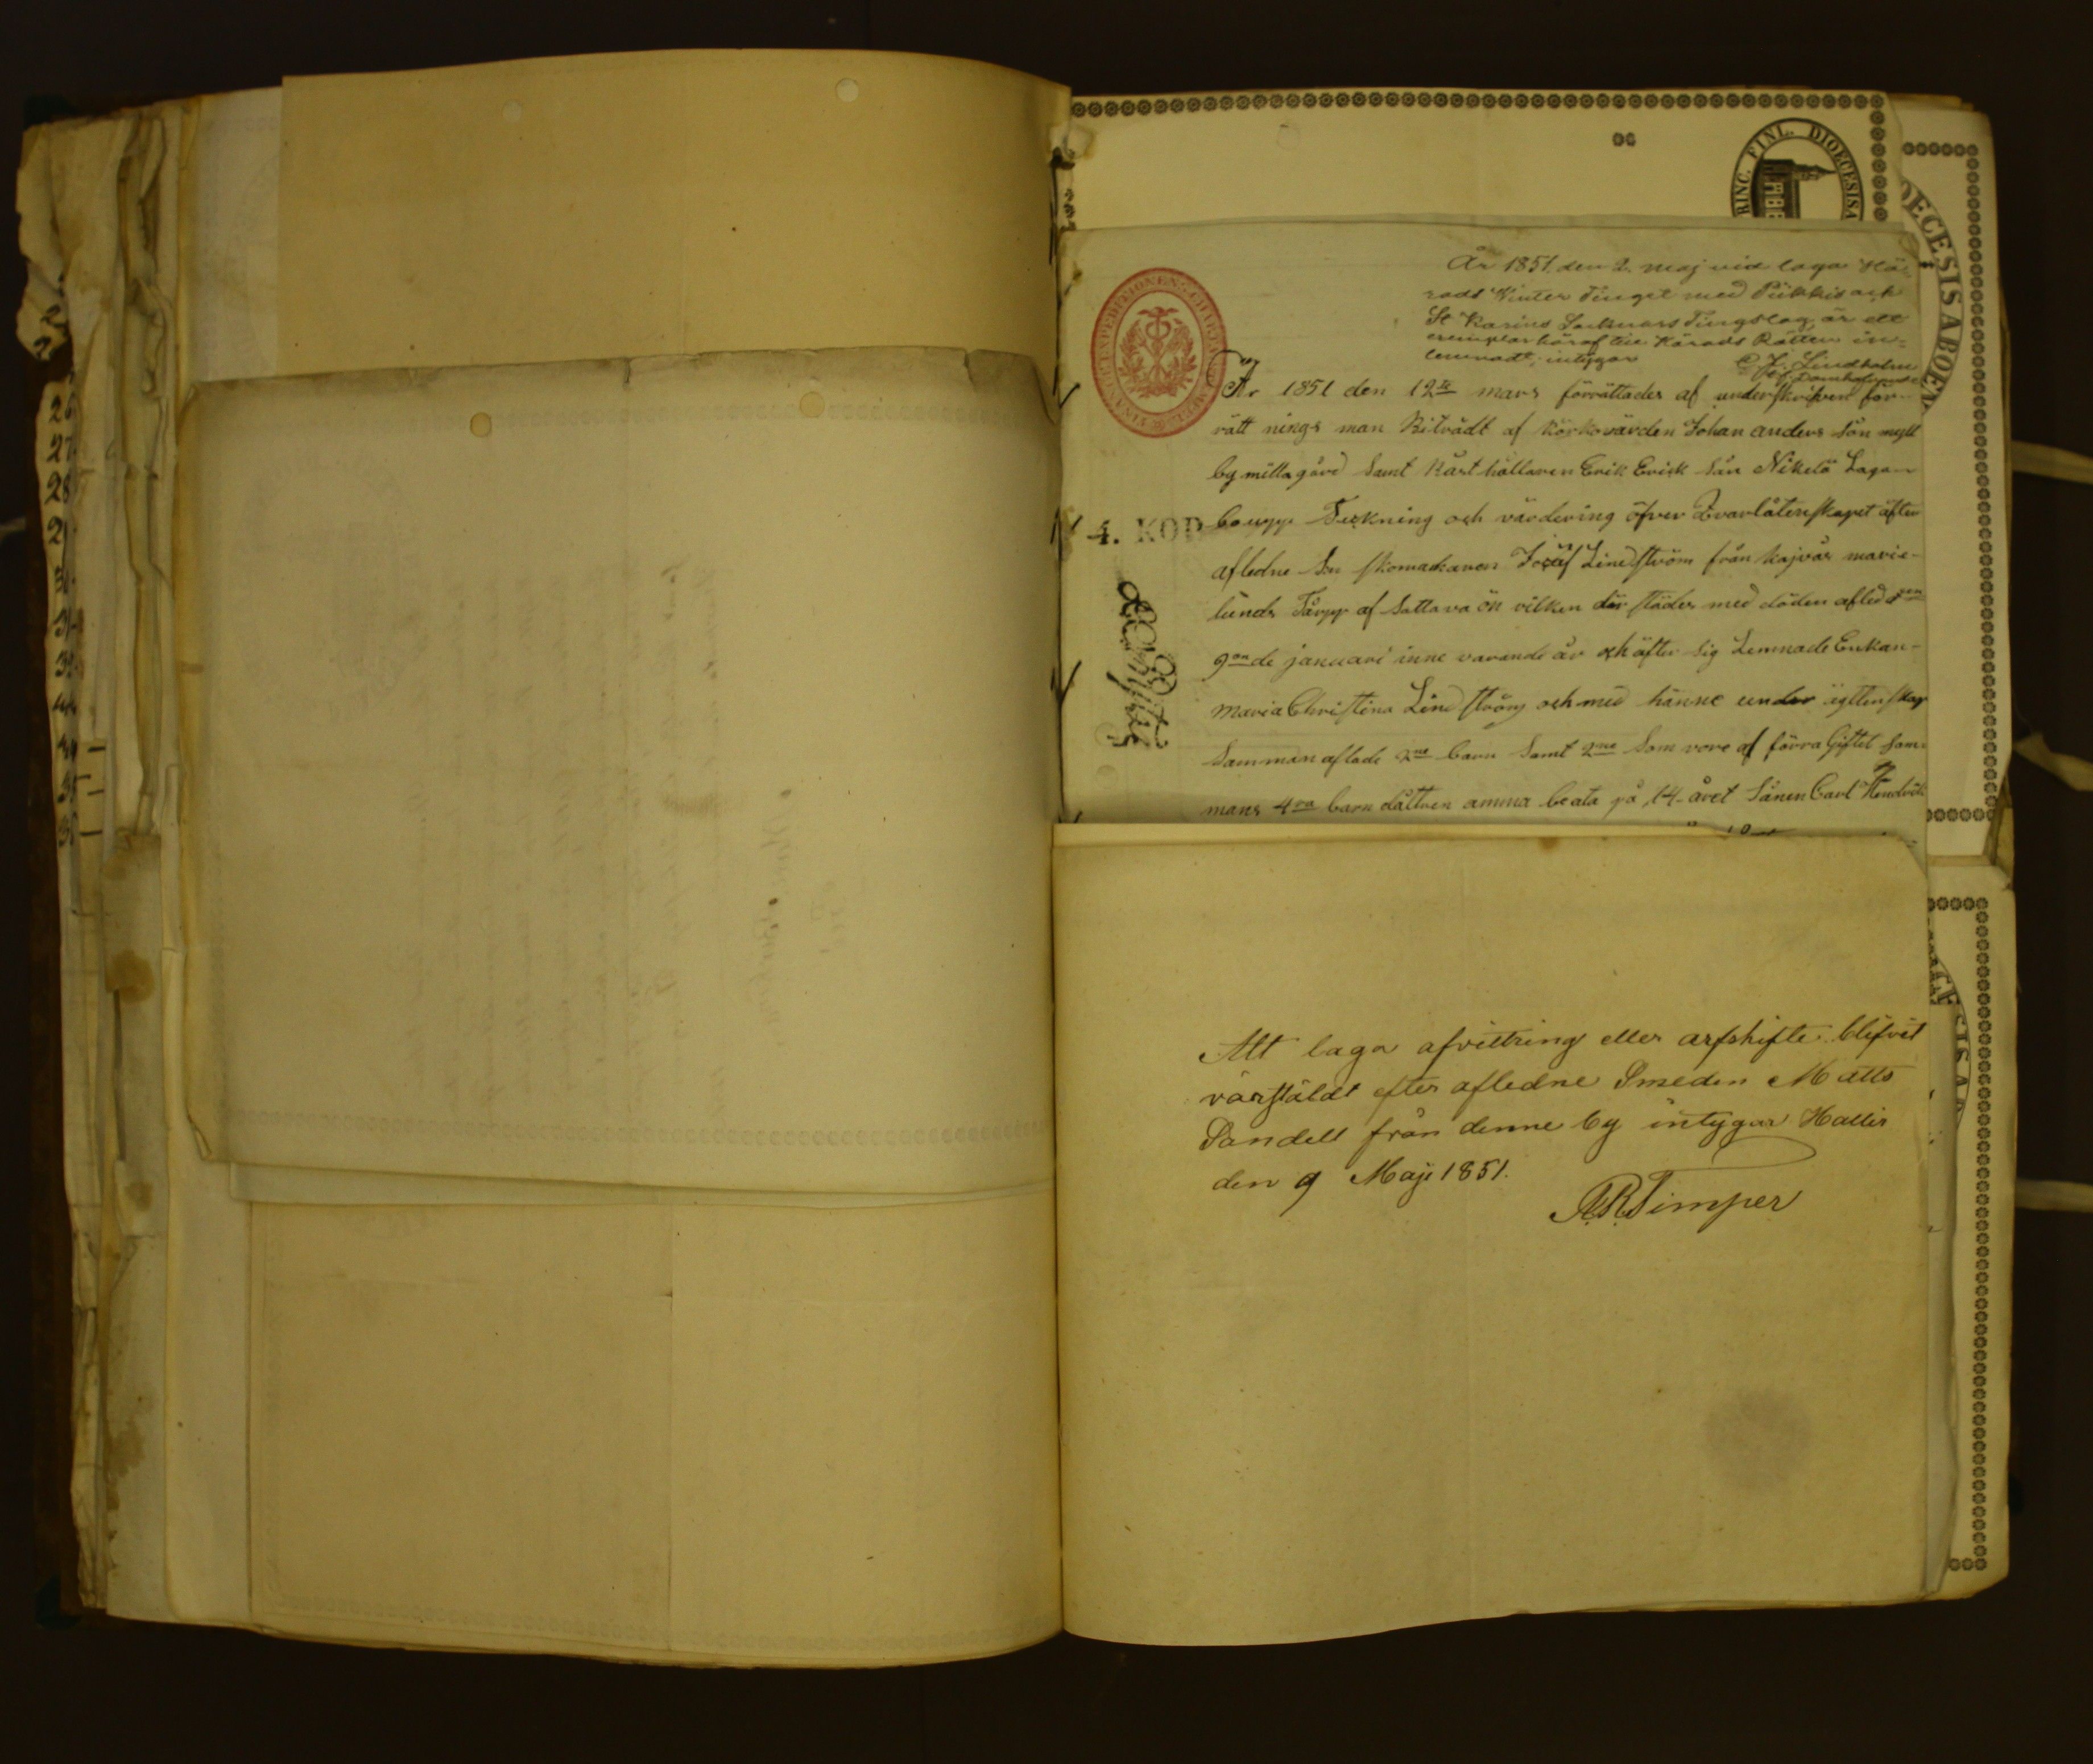 26
27
28
RINC. FINL. DIOECESISA
OECESISABOEN
År 1851. den 2. maj vid laga Hä-
rads Winter Tinget med Piikkis och
St Karins Socknars Tingslag, är ett
exemplar häraf till Härads Rätten in-
lemnadt; intygar
C. J. Lindholm
År 1851 den 12te mars förrättades af underskrifven för-
rätt nings man Biträdt af Körkovärden Johan anders Sön
by millagård Samt Råst hållaren Erik Erick Sån Nikelä Lagan
bo upp Teckning och värdering öfver Qvarlåtenskapet äfter
afledne Sn skomackaren Josäf Lindström från Kajvår marie-
lunds Tårpp af Sattava ön vilken där städes med döden afled den
9onde januari inne varande år och äfter sig Lemnade Enkan-
Maria Christina Lindström och med hänne under ägttenskap
Sammanaflade 2ne barn Samt 2ne Som vore af förra Giftet Sam-
mans 4ra barn dåttren amma beata på 14- året Sånen Carl Hendrik
4. KOP
Att laga afvittring eller arfskifte blifvit
värstäldt efter afledne Smeden Matts
Sandell från denne by intygar Hallis
den 9 Maji 1851.
A.R. Timper